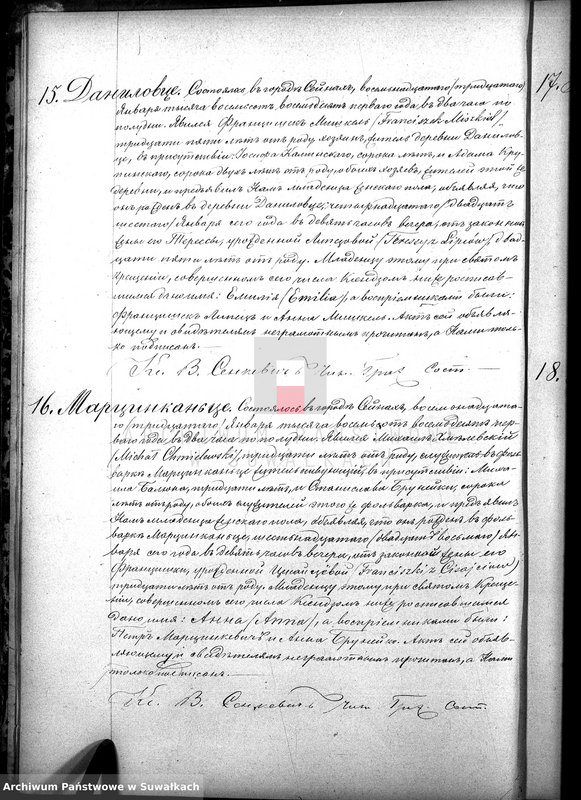 15. Даниловце. Состоялось въ городѣ Сейнахъ, восемнадцатаго /тридцатаго/
Января тысяча восемьсотъ восемьдесятъ перваго года въ два часа по
полудни. Явился Францискъ Мисккель /Franciszek
тридцати пяти лѣтъ отъ роду, хозяинъ, житель деревни Данилов-
це, въ присутствіи: Іосифа сорока лѣтъ, и Адама Кру-
сорока двухъ лѣтъ отъ роду, обоихъ хозяевъ, жителей этой же
деревни, и предъявилъ Намъ младенца женскаго пола, объявляя, что
онъ рожденъ въ деревни Даниловце, четырнадцатаго /двадцать
шестаго/ Января сего года въ девять часовъ вечера, отъ законной
жены его Тересы, урожденной Липцовой /Teresy z Lipców/, двад-
цати пяти лѣтъ отъ роду. Младенцу этому при святомъ
крещеніи, совершенномъ сего числа Ксендзомъ нижеподписав-
шимся дано имя: Емилія /Emilia/, а воспріемниками были:
Францискъ Липецъ и Анна Актъ сей объявля-
ющему и свидѣтелямъ неграмотнымъ прочитанъ, а Нами толь-
ко подписанъ.
Кс. В. Сенкевичъ Чин. Граж. Сост.
16. Марцинканьце. Состоялось въ городѣ Сейнахъ, восемнадцата-
го /тридцатаго/ Января тысяча восемьсотъ восемьдесятъ пер-
ваго года, въ два часа по полудни. Явился Михаилъ Хмѣлевскій
/Michał Chmielewski/, тридцати лѣтъ отъ роду, служитель въ фоль-
варкѣ Марцинканьце жительствующій, въ присутствіи: Миха-
ила тридцати лѣтъ, и Станислава Брунейки, сорока
лѣтъ отъ роду, обоихъ служителей этого же фольварка, и предъявилъ
Намъ младенца женскаго пола, объявляя, что онъ рожденъ въ фоль-
варкѣ Марцинканьце, шестьнадцатаго /двадцать восьмаго/ Ян-
варя сего года въ девять часовъ вечера, отъ законной жены его
Францишки, урожденной /Franciszki z
тридцати лѣтъ отъ роду. Младенцу этому при святомъ Креще-
ніи, совершенномъ сего числа Ксендзомъ нижеподписавшимся
дано имя: Анна /Anna/, а воспріемниками были:
Петръ Марцинкевичъ и Анна Брунейко. Актъ сей объяв-
ляющему и свидѣтелямъ неграмотнымъ прочитанъ, а Нами
только подписанъ.
Кс. В. Сенкевичъ Чин. Граж. Сост.
17.
18.
Archiwum Państwowe w Suwałkach